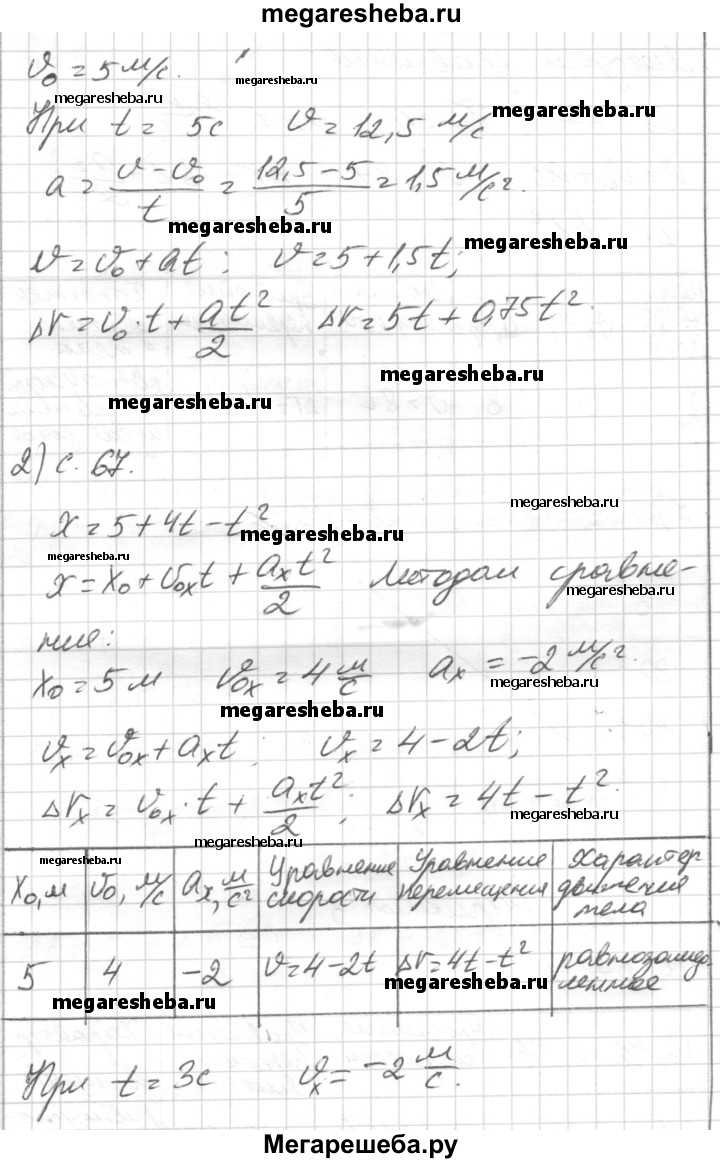 megaresheba.ru
v₀ = 5 м/с.
megaresheba.ru
megaresheba.ru
При t = 5с v = 12,5 м/с
megaresheba.ru
a = (v - v₀)/t = (12,5 - 5)/5 = 1,5 м/с².
megaresheba.ru
megaresheba.ru
v = v₀ + at; v = 5 + 1,5t;
Δr = v₀·t + at²/2 Δr = 5t + 0,75t².
megaresheba.ru
megaresheba.ru
2) с. 67.
megaresheba.ru
x = 5 + 4t - t².
megaresheba.ru
megaresheba.ru
x = x₀ + v₀ₓt + aₓt²/2 Методом сравне-
megaresheba.ru
ния:
x₀ = 5 м v₀ₓ = 4 м/с aₓ = -2 м/с².
megaresheba.ru
megaresheba.ru
vₓ = v₀ₓ + aₓt; vₓ = 4 - 2t;
Δrₓ = v₀ₓ·t + aₓt²/2; Δrₓ = 4t - t².
megaresheba.ru
megaresheba.ru
megaresheba.ru
x₀, м v₀, м/с aₓ, м/с² Уравнение скорости Уравнение перемещения Характер движения тела
5 4 -2 v = 4 - 2t Δr = 4t - t² равнозамед-ленное
megaresheba.ru
megaresheba.ru
При t = 3с vₓ = -2 м/с.
Мегарешеба.ру